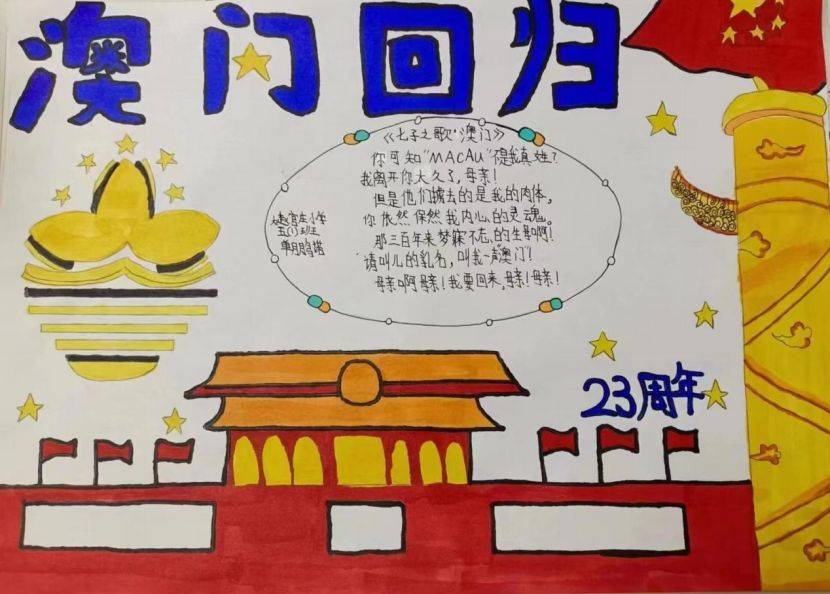 澳门回归
《七子之歌·澳门》
你可知"MACAU"不是我真姓?
我离开你太久了,母亲!
但是他们掳去的是我的肉体,
你依然保然我内心的灵魂。
那三百年来梦寐不忘的生母啊!
请叫儿的乳名,叫我一声澳门!
母亲啊母亲!我要回来,母亲!母亲!
官庄小学
23周年